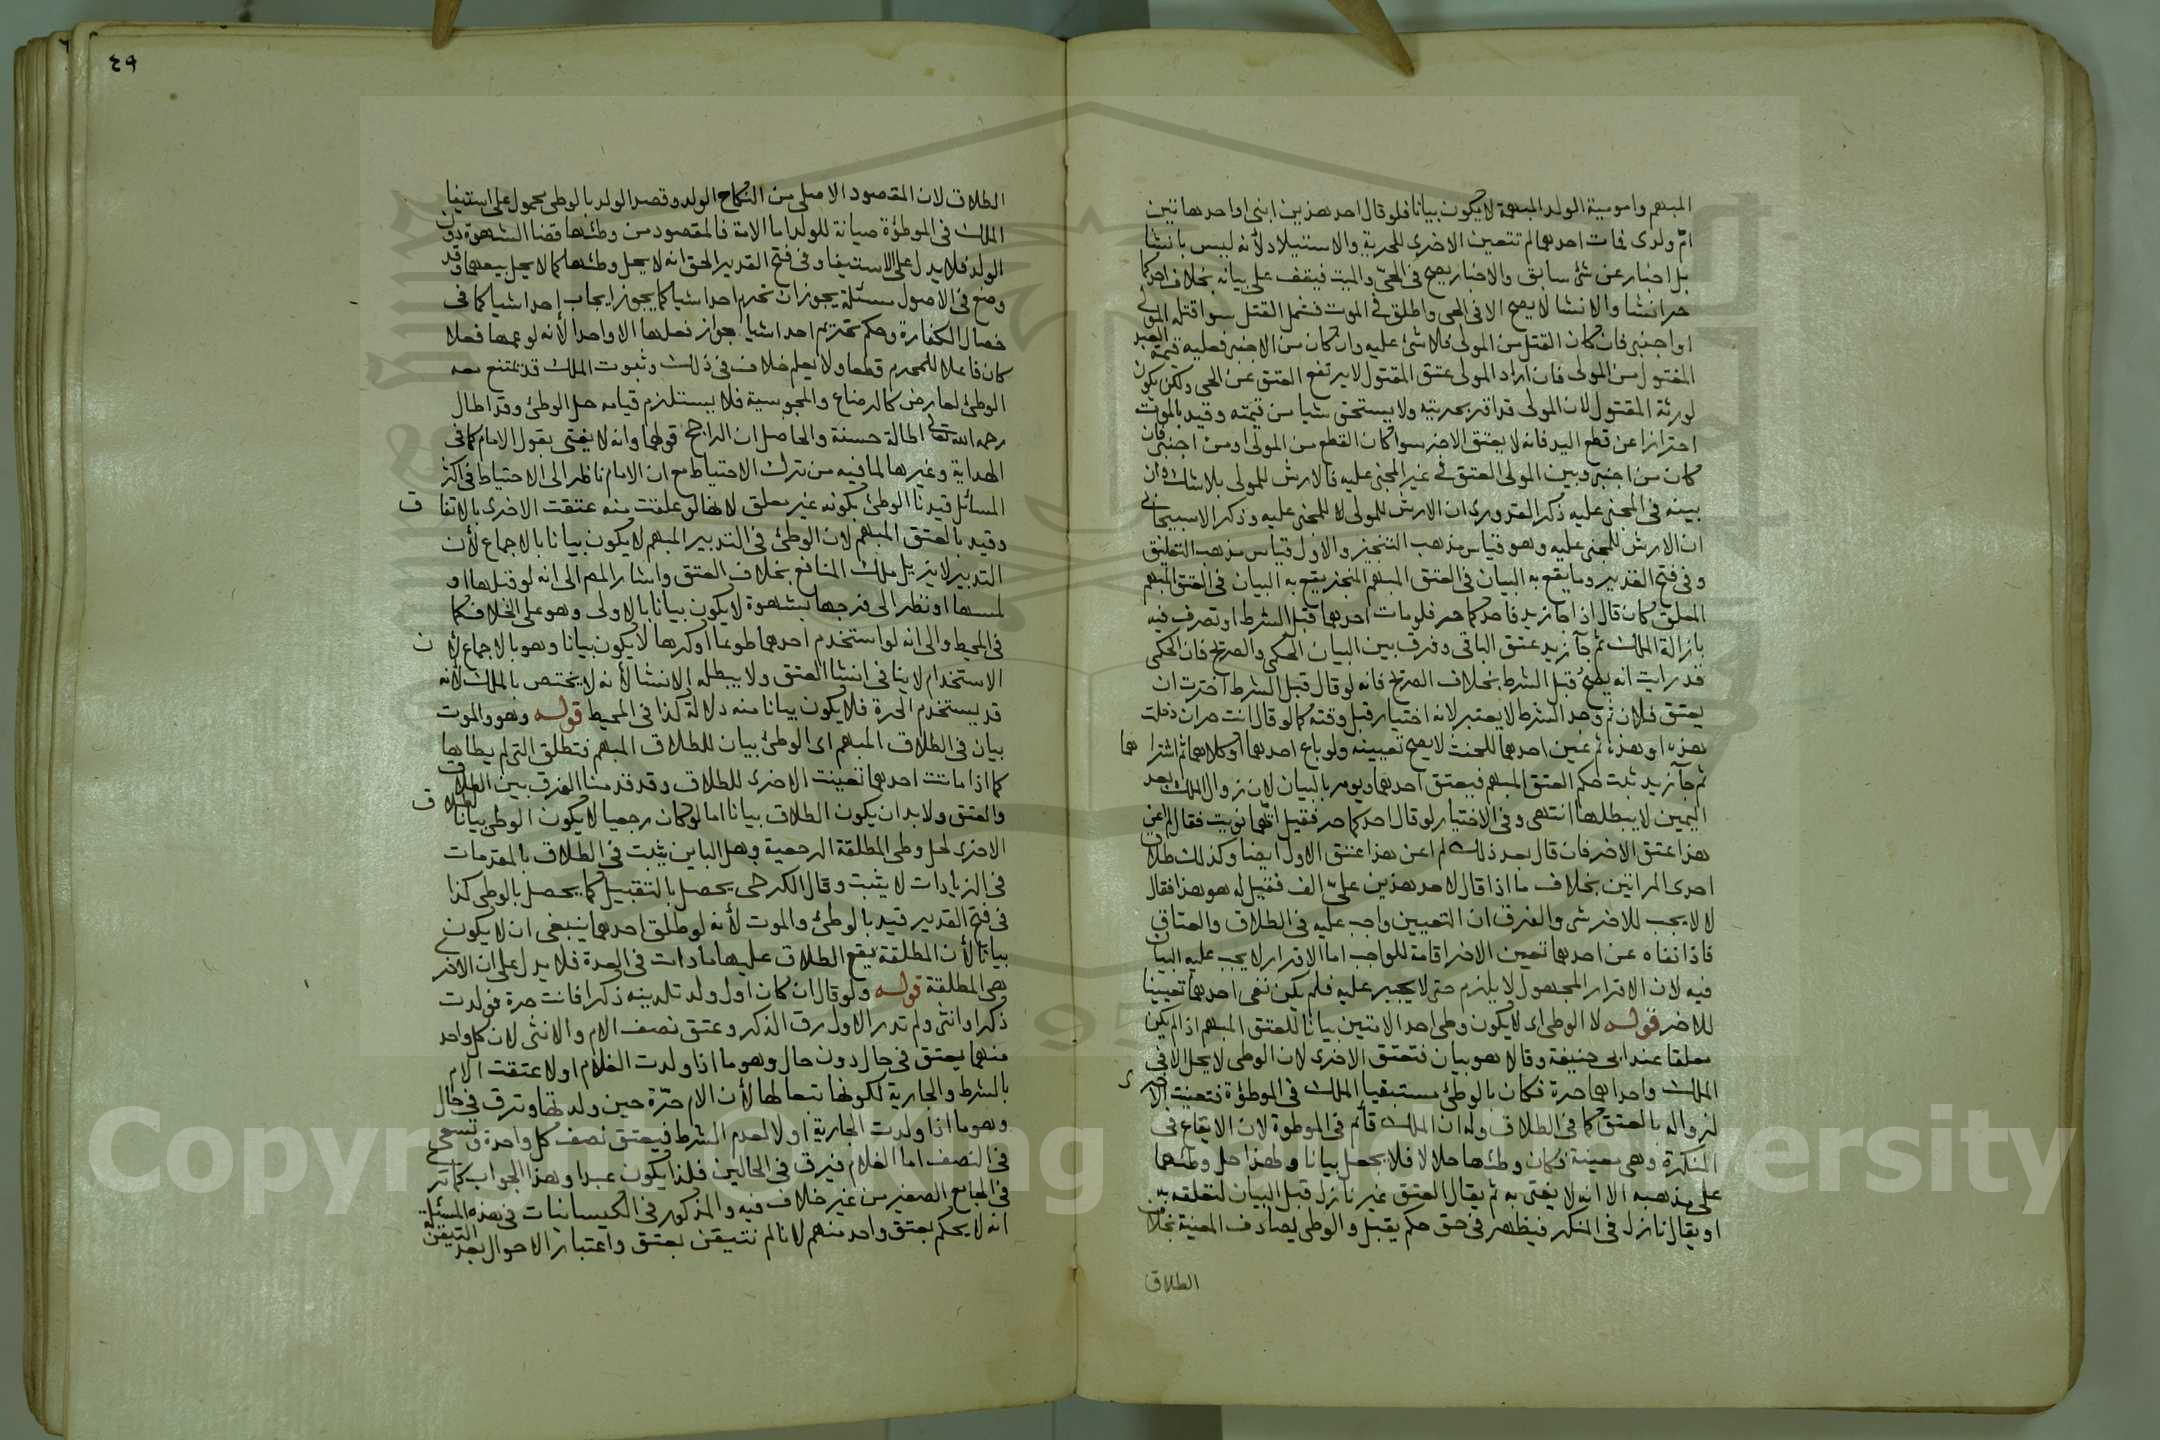 المبهم وامومية الولد المبهمة لا يكون بيانا فلو قال احد هذين ابنى او احد هاتين
ام ولدى فمات احدهما لم تتعين الاخرى للحرية والاستيلاد لأنه ليس بانشا
بل اخبار عن شئ سابق والاخبار يصح فى الحىّ والميت فيقف على بيانه بخلاف احدكما
حر انشا والانشا لا يصح الا فى الحى واطلق فى الموت فشمل القتل سوا قتله المولى
او اجنبى فان كان القتل من المولى فلا شئ عليه وان كان من الاجنبى فعليه قيمة العبد
المقتول من المولى فان اراد المولى عتق المقتول لا يرتفع العتق عن الحى ولكن يكون
لورثة المقتول لان المولى قد اقر بحريته ولا يستحق شيا من قيمته وقيد بالموت
احترازا عن قطع اليد فانه لا يعتق الاخر سوا كان القطع من المولى او من اجنبى فان
كان من اجنبى وبين المولى العتق فى غير المجنى عليه فالارش للمولى بلا شك وان
بينه فى المجنى عليه ذكر القدورى ان الارش للمولى لا للمجنى عليه وذكر الاسبيجابى
ان الارش للمجنى عليه وهو قياس مذهب التنجيز والاول قياس مذهب التعليق
وفى فتح القدير وما يقع به البيان فى العتق المبهم المنجز يقع به البيان فى العتق المبهم
المعلق كان قال اذا جا زيد فاحدكما حر فلو مات احدهما قبل الشرط او تصرف فيه
بازالة الملك ثم جآ زيد عتق الباقى وفرق بين البيان الحكمى والصريح فان الحكمى
قد رايت انه يصح قبل الشرط بخلاف الصريح فانه لو قال قبل الشرط اخترت ان
يعتق فلان ثم وجد الشرط لا يعتبر لانه اختيار قبل وقته كما لو قال انت حر ان دخلت
هذه او هذه ثم عين احدهما للحنث لا يصح تعيينه ولو باع احدهما او كلاهما ثم اشتراهما
ثم جآ زيد ثبت حكم العتق المبهم فيعتق احدهما ويومر بالبيان لان زوال الملك بعد
اليمين لا يبطلها انتهى وفى الاختيار لو قال احدكما حر فقيل ايهما نويت فقال لم اعن
هذا عتق الاخر فان قال بعد ذلك لم اعن هذا عتق الاول ايضا وكذلك طلاق
احدى المراتين بخلاف ما اذا قال لاحد هذين علىّ الف فقيل له هو هذا فقال
لا لا يجب للاخر شى والفرق ان التعيين واجب عليه فى الطلاق والعتاق
فاذا نفاه عن احدهما تعين الاخر اقامة للواجب اما الاقرار لا يجب عليه البيان
فيه لان الاقرار المجهول لا يلزم حتى لا يجبر عليه فلم يكن نفى احدهما تعيينا
للاخر قوله لا الوطى اى لا يكون وطى احد الامتين بيانا للعتق المبهم اذا لم يكن
معلقا عند ابى حنيفة وقالا هو بيان فتعتق الاخرى لان الوطى لا يحل الا فى
الملك واحداهما حرة فكان بالوطئ مستبقيا الملك فى الموطؤة فتعينت الاخرى
لزواله بالعتق كما فى الطلاق وله ان الملك قائم فى الموطوة لان الايقاع فى
المنكرة وهى معينة فكان وطئها حلالا فلا يجعل بيانا ولهذا حل وطئهما
على مذهبه الا انه لا يفتى به ثم يقال العتق غير نازل قبل البيان لتعلقه به
او يقال نازل فى المنكر فيظهر فى حق حكم يقبل والوطى يصادف المعينة بخلاف
الطلاق
٤٩
الطلاق لان المقصود الاصلى من النكاح الولد وقصد الولد بالوطى محمول على استبقا
الملك فى الموطؤة صيانة للولد اما الامة فالمقصود من وطئها قضا الشهوة دون
الولد فلا يدل على الاستبقا وفى فتح القدير الحق انه لا يحل وطئهما كما لا يحل بيعهما وقد
وضع فى الاصول مسئلة يجوز ان تحرم احد اشيا كما يجوز ايجاب احد اشيا كما فى
خصال الكفارة وحكم تحريم احد اشيا جواز فعلها الا واحدا لأنه لو عمها فعلا
كان فاعلا للمحرم قطعا ولا يعلم خلاف فى ذلك وثبوت الملك قد يمتنع معه
الوطئ لعارض كالرضاع والمجوسية فلا يستلزم قيامه حل الوطئ وقد اطال
رحمه الله تعالى اطالة حسنة والحاصل ان الراجح قولهما وانه لا يفتى بقول الامام كما فى
الهداية وغيرها لما فيه من ترك الاحتياط مع ان الامام ناظر الى الاحتياط فى اكثر
المسائل قيدنا الوطئ بكونه غير معلق لانها لو علقت منه عتقت الاخرى بالاتفاق
وقيد بالعتق المبهم لان الوطئ فى التدبير المبهم لا يكون بيانا بالاجماع لأن
التدبير لا يزيل ملك المنافع بخلاف العتق واشار المص الى انه لو قبلها او
لمسها او نظر الى فرجها بشهوة لا يكون بيانا بالاولى وهو على الخلاف كما
فى المحيط والى انه لو استخدم احدهما طوعا او كرها لا يكون بيانا وهو بالاجماع لأن
الاستخدام لا ينافى انشا العتق ولا يبطله الانشا لأنه لا يختص بالملك لأنه
قد يستخدم الحرة فلا يكون بيانا منه دلالة كذا فى المحيط قوله وهو والموت
بيان فى الطلاق المبهم اى الوطئ بيان للطلاق المبهم فتطلق التى لم يطاها
كما اذا ماتت احدهما تعينت الاخرى للطلاق وقد قدمنا الفرق بين الطلاق
والعتق ولا بد ان يكون الطلاق بيانا اما لو كان رجعيا لا يكون الوطى بيانا لطلاق
الاخرى لحل وطى المطلقة الرجعية وهل الباين يثبت فى الطلاق بالمقدمات
فى الزيادات لا يثبت وقال الكرخى يحصل بالتقبيل كما يحصل بالوطى كذا
فى فتح القدير قيد بالوطئ والموت لأنه لو طلق احدهما ينبغى ان لا يكون
بيانا لأن المطلقة يقع الطلاق عليها ما دامت فى العدة فلا يدل على ان الاخر
هى المطلقة قوله ولو قال ان كان اول ولد تلدينه ذكرا فانت حرة فولدت
ذكرا وانثى ولم تدر الاول رق الذكر وعتق نصف الام والانثى لان كل واحد
منهما يعتق فى حال دون حال وهو ما اذا ولدت الغلام اولا عتقت الام
بالشرط والجارية لكونها تبعا لها لأن الام حرّة حين ولدتها وترق فى حال
وهو ما اذا ولدت الجارية اولا لعدم الشرط فيعتق نصف كل واحدة وتسعى
فى النصف اما الغلام فيرق فى الحالين فلذا يكون عبدا وهذا الجواب كما ترى
فى الجامع الصغير من غير خلاف فيه والمذكور فى الكيسانيات فى هذه المسئلة
انه لا يحكم بعتق واحد منهم لانا لم نتيقن بعتق واعتبار الاحوال بعد التيقن
Copyright © King University